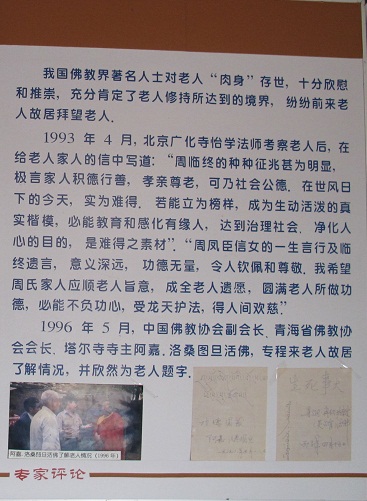 我国佛教界著名人士对老人“肉身”存世，十分欣慰
和推崇，充分肯定了老人修持所达到的境界，纷纷前来老
人故居拜望老人．
1993 年 4 月，北京广化寺怡学法师考察老人后，在
给老人家人的信中写道：“周临终的种种征兆甚为明显，
极言家人积德行善，孝亲尊老，可乃社会公德．在世风日
下的今天，实为难得．若能立为榜样，成为生动活泼的真
实楷模，必能教育和感化有缘人，达到治理社会．净化人
心的目的，是难得之素材”．“周凤臣信女的一生言行及临
终遗言，意义深远，功德无量，令人钦佩和尊敬．我希望
周氏家人应顺老人旨意，成全老人遗愿，圆满老人所做功
德，必能不负功心，受龙天护法，得人间欢慈．”
1996 年 5 月，中国佛教协会副会长．青海省佛教协
会会长．塔尔寺寺主阿嘉．洛桑图旦活佛，专程来老人故居
了解情况，并欣然为老人题字．
阿嘉．洛桑图旦活佛了解老人情况（1996年）
专家评论